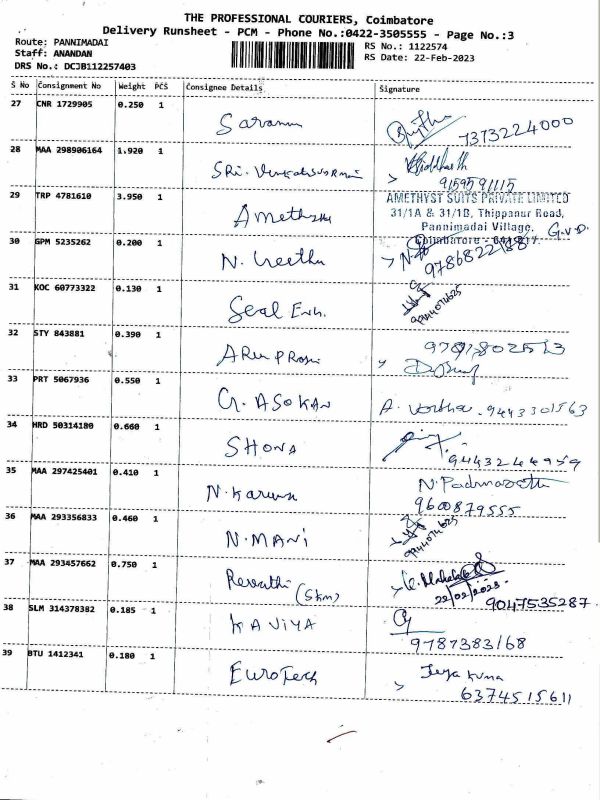 THE PROFESSIONAL COURIERS, Coimbatore
Delivery Runsheet - PCM - Phone No.:0422-3505555 - Page No.:3
Route: PANNIMADAI
RS No.: 1122574
Staff: ANANDAN
RS Date: 22-Feb-2023
DRS No.: DCJB112257403
S No Consignment No Weight PCS Consignee Details Signature
27 CNR 1729905 0.250 1 Saravanan
7373224000
28 MAA 298906164 1.920 1 Sri.
9159591115
29 TRP 4781610 3.950 1 Amethyst
AMETHYST SUITS PRIVATE LIMITED
31/1A & 31/1B, Thippanur Road,
Pannimadai Village.
Coimbatore - 641 017.
G.V.D.
30 GPM 5235262 0.200 1 N.
9786822188
31 KOC 60773322 0.130 1 Seal
9944074625
32 STY 843881 0.390 1
33 PRT 5067936 0.550 1 G. ASOKAN
A. 9443301563
34 HRD 50314180 0.660 1 SHONA
9443244959
35 MAA 297425401 0.410 1 N. Karuna
N. Padmavathi
9600879555
36 MAA 293356833 0.460 1 N. MANI
9944074625
37 MAA 293457662 0.750 1 Revathi (Skm)
22/02/2023.
9047535287
38 SLM 314378382 0.185 1 KAVIYA
9787383168
39 BTU 1412341 0.180 1 EuroTech
Jeya Kumar
6374515611